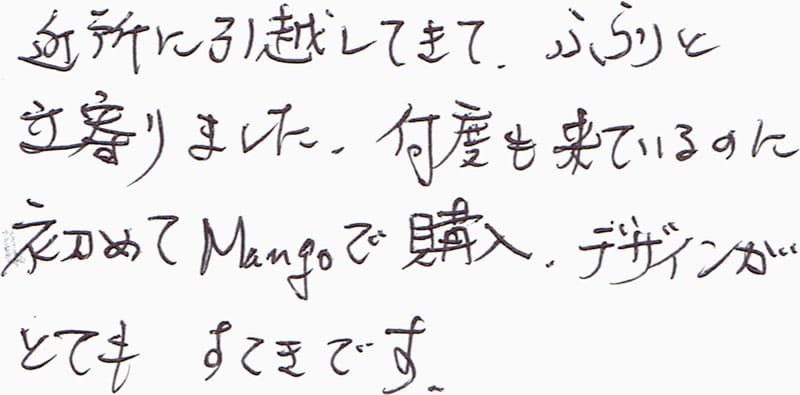 近所に引越してきて、ふらりと
立寄りました。何度も来ているのに
初めてMangoで購入。デザインが
とても すてきです。